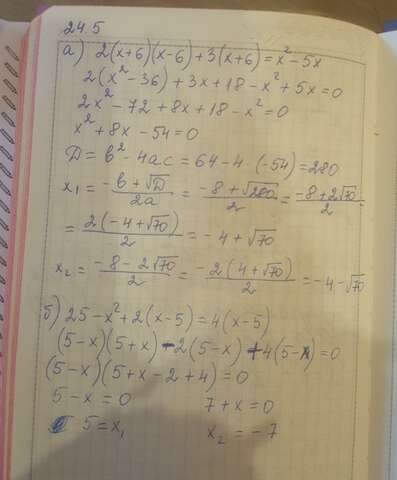 24.5
а) 2(x+6)(x-6)+3(x+6)=x²-5x
2(x²-36)+3x+18-x²+5x=0
2x²-72+8x+18-x²=0
x²+8x-54=0
D=b²-4ac=64-4·(-54)=280
x₁=(-b+√D)/(2a)=(-8+√280)/2=(-8+2√70)/2
=(2(-4+√70))/2=-4+√70
x₂=(-8-2√70)/2=(-2(4+√70))/2=-4-√70
б) 25-x²+2(x-5)=4(x-5)
(5-x)(5+x)-2(5-x)+4(5-x)=0
(5-x)(5+x-2+4)=0
5-x=0 7+x=0
5=x₁ x₂=-7